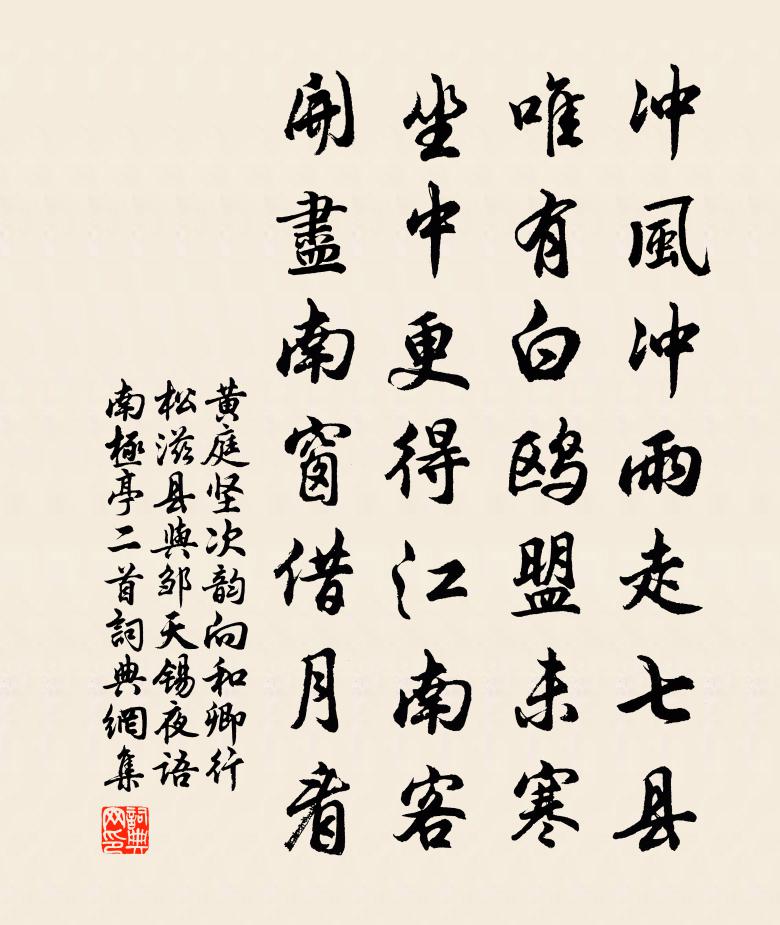 冲風冲雨走七县
唯有白鸥盟未寒
坐中更得江南客
開盡南窗借月看
黄庭坚次韵向和卿行
松滋县與邹天锡夜语
南極亭二首詞典網集
詞典网印